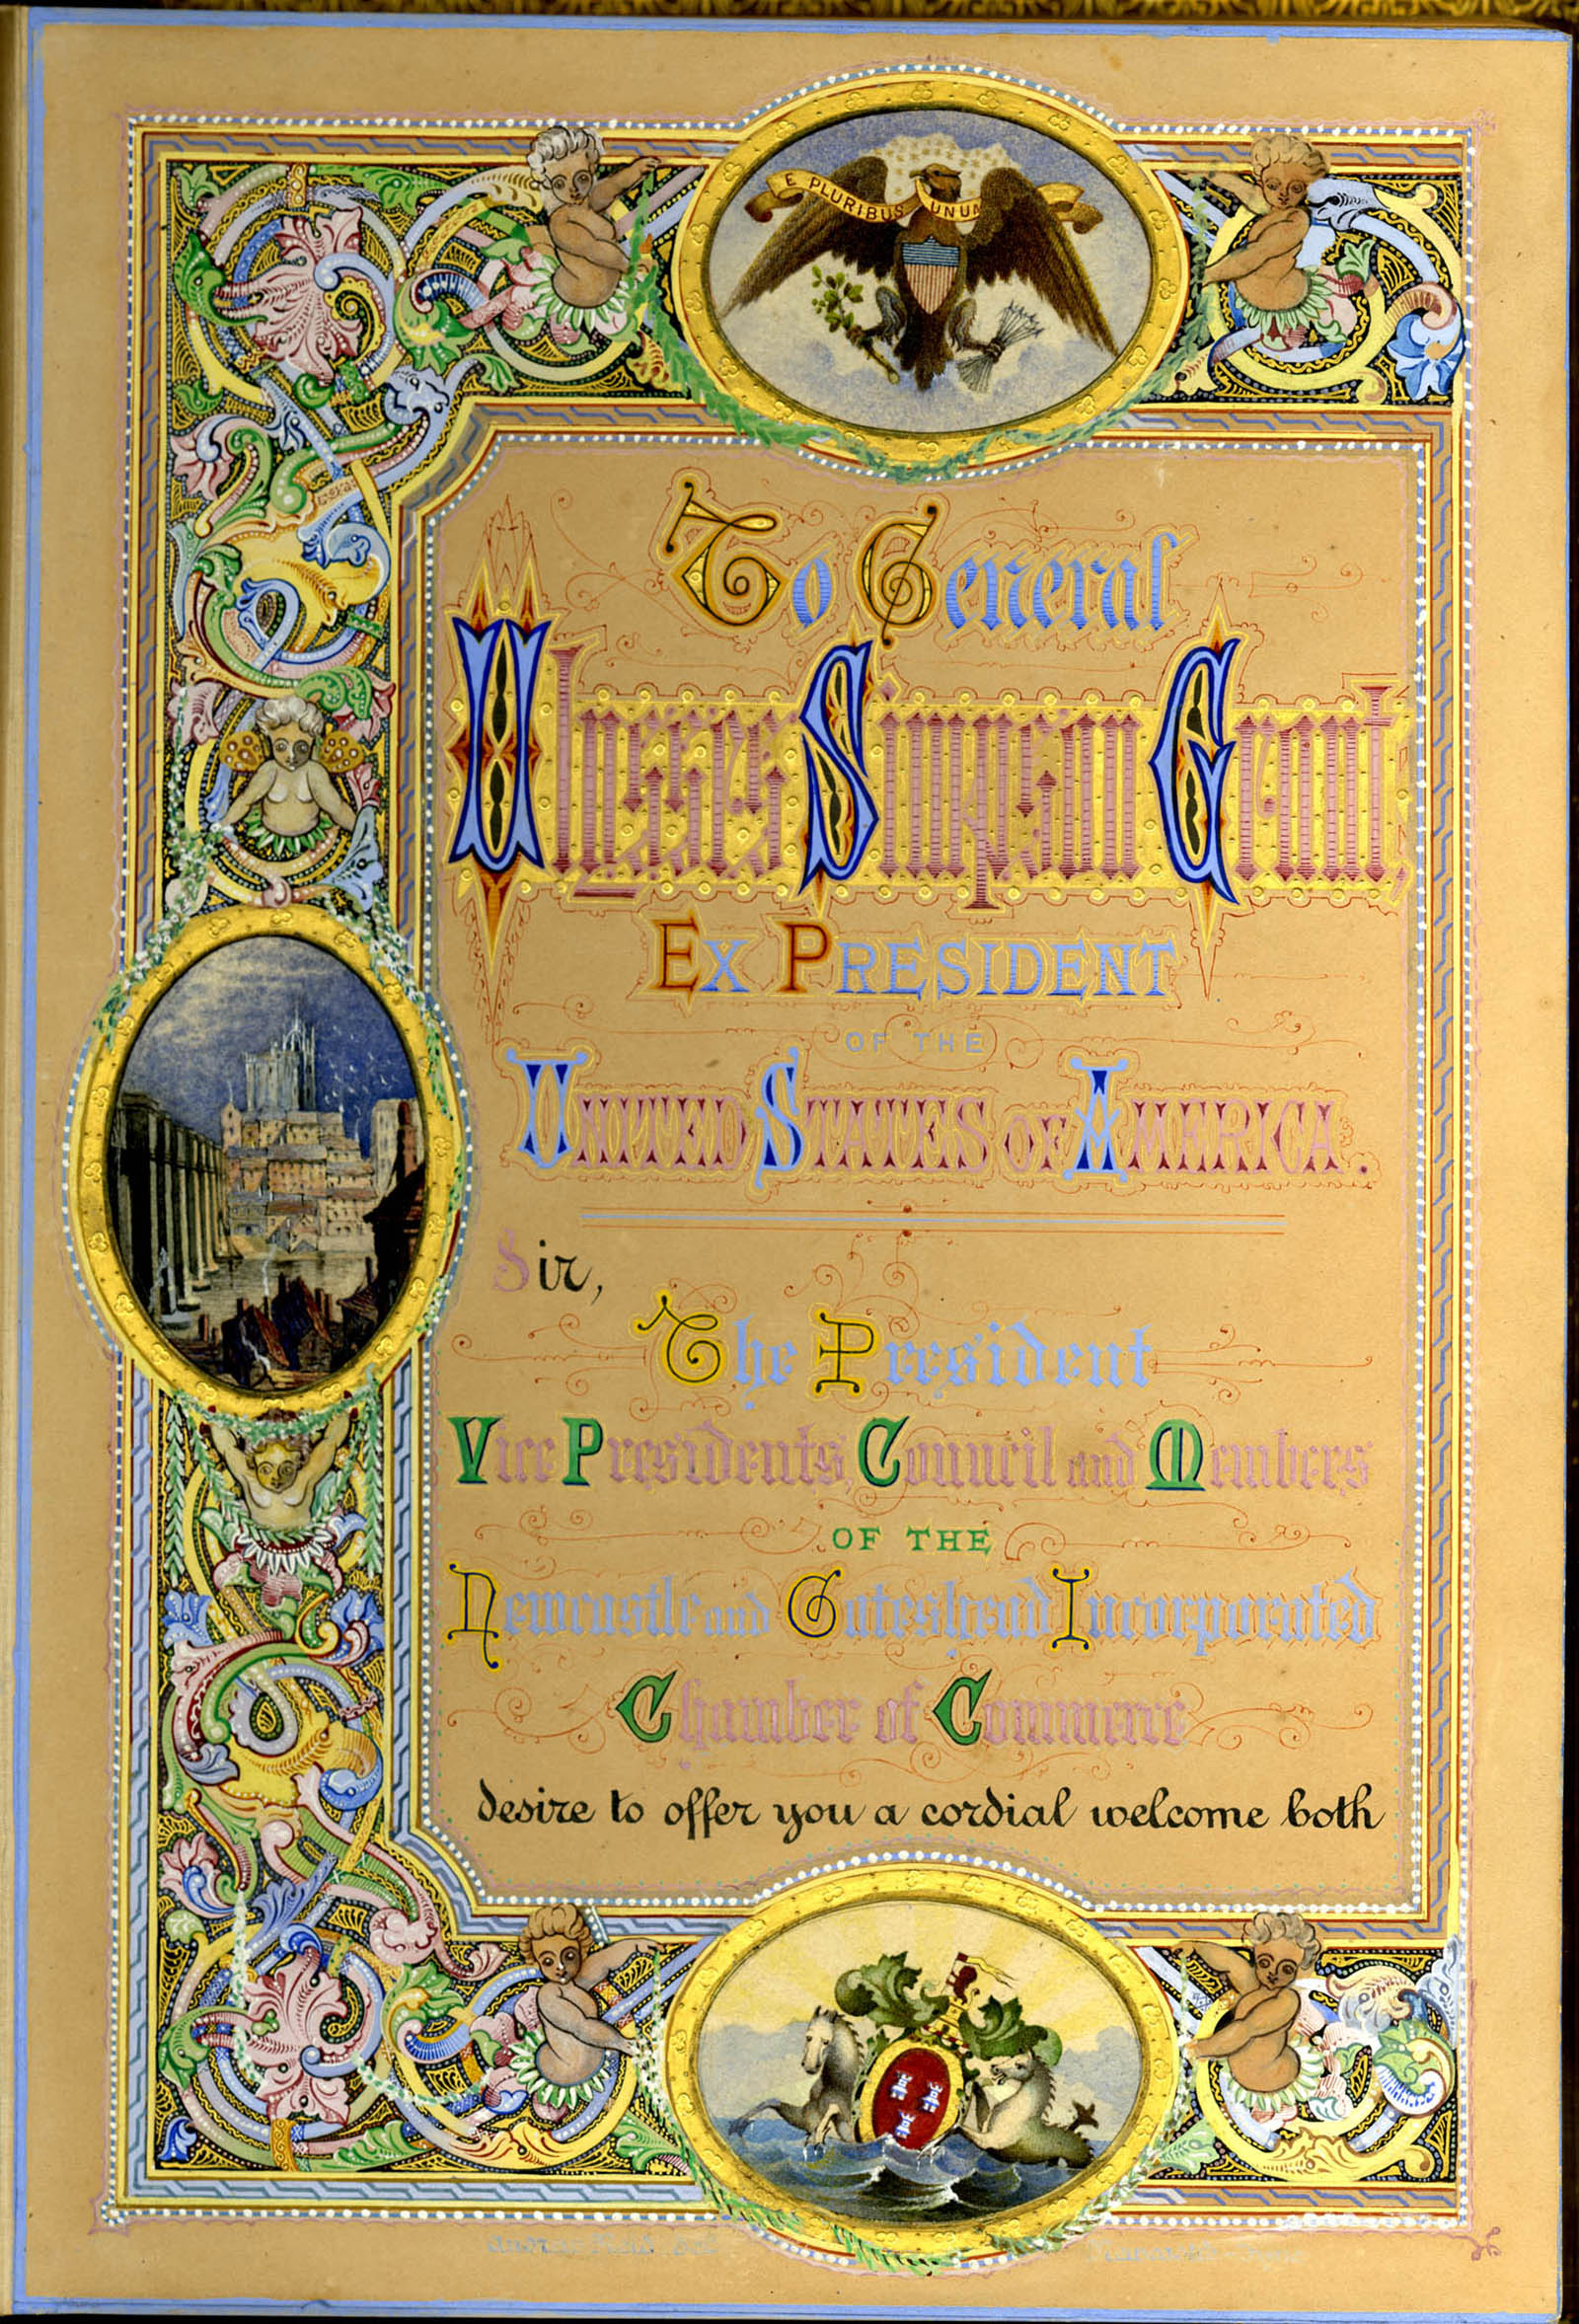 E PLURIBUS UNUM
To General
Ulysses Simpson Grant,
EX PRESIDENT
OF THE
UNITED STATES OF AMERICA.
Sir,
The President
Vice Presidents, Council and Members
OF THE
Newcastle and Gateshead Incorporated
Chamber of Commerce
desire to offer you a cordial welcome both
Andrew Reid